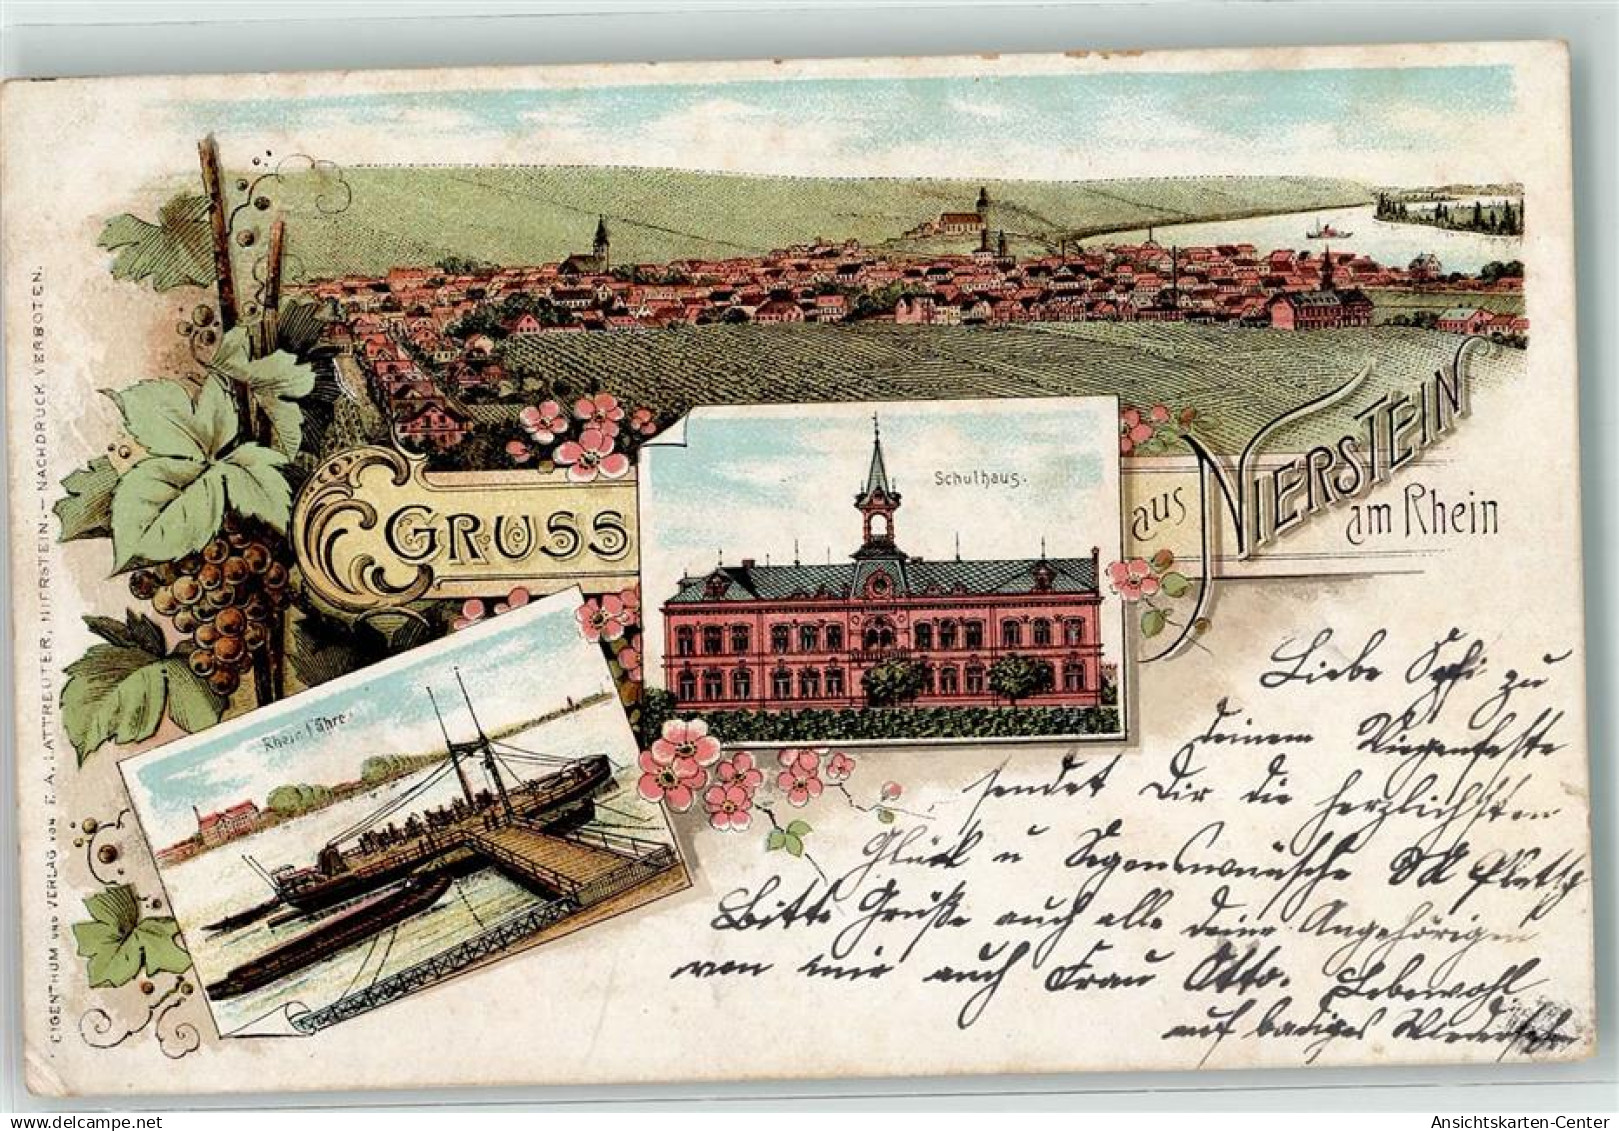 GRUSS
aus NIERSTEIN
am Rhein
Schulhaus.
Rheinfähre.
EIGENTHUM UND VERLAG VON E. A. LATTREUTER, NIERSTEIN. — NACHDRUCK VERBOTEN.
Liebe Sofi zu
deinem Wiegenfeste
sendet Dir die herzlichsten
Glück u Segenswünsche
Bitte Grüße auch alle deine Angehörigen
von mir auch Frau Otto. Lebewohl
auf baldiges Wiedersehn
oldthing.de
Ansichtskarten-Center